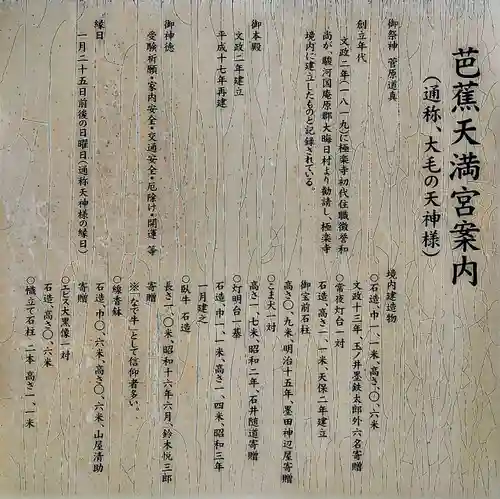 芭蕉天満宮案内
(通称、大毛の天神様)
御祭神 菅原道真
創立年代
文政二年(一八一九)に極楽寺初代住職微誉和
尚が、駿河国庵原郡大晦日村より勧請し、極楽寺
境内に建立したものと記録されている。
御本殿
文政二年建立
平成十七年再建
御神徳
受験祈願・家内安全・交通安全・厄除け・開運 等
縁日
一月二十五日前後の日曜日(通称天神様の縁日)
境内建造物
○石造、巾一、一米、高さ、○、六米
文政十三年、玉ノ井墨鉄太郎外六名寄贈
○常夜灯台一対
石造、高さ一、一米、天保二年建立
御宝前石柱
高さ○、九米、明治十五年、墨田神辺屋寄贈
○こま犬一対
高さ一、七米、昭和二年、石井随道寄贈
○灯明台一基
石造、巾一、一米、高さ一、四米、昭和三年
一月建之
○臥牛 石造
長さ一、○米、昭和十六年六月、鈴木悦三郎
寄贈
※「なで牛」として信仰者多い。
○線香鉢
石造、巾○、六米、高さ○、六米、山屋清助
寄贈
○エビス大黒像一対
石造、高さ○、六米
○幟立て石柱 二本 高さ一、一米